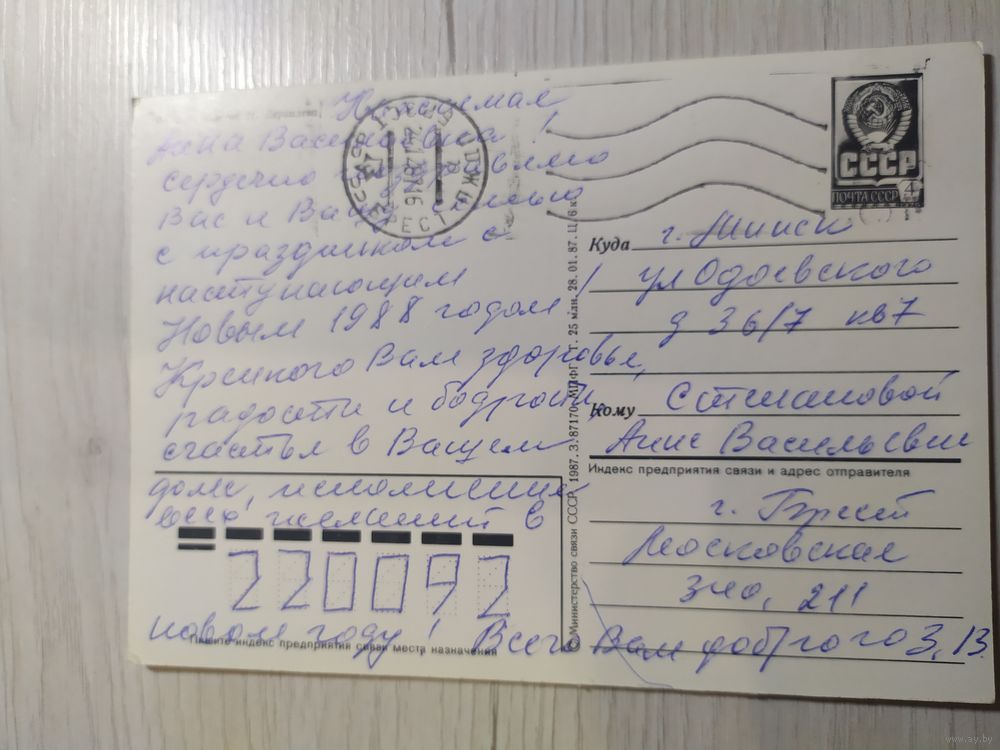 Уважаемая
Анна Васильевна!
сердечно поздравляю
Вас и Вашу семью
с праздником с
наступающим
Новым 1988 годом!
Крепкого Вам здоровья,
радости и бодрости,
счастья в Вашем
доме, исполнения
всех желаний в
новом году! Всего Вам доброго З, В.
220092
Пишите индекс предприятия связи места назначения
© Министерство связи СССР. 1987. З. 87170. МПФГ. Т. 25 млн. 28.01.87. Ц. 6 к.
СССР
ПОЧТА СССР 4
Куда г. Минск
ул Одоевского
д 36/7 кв7
Кому Степановой
Анне Васильевне
Индекс предприятия связи и адрес отправителя
г. Брест
Московская
211
www.ay.by